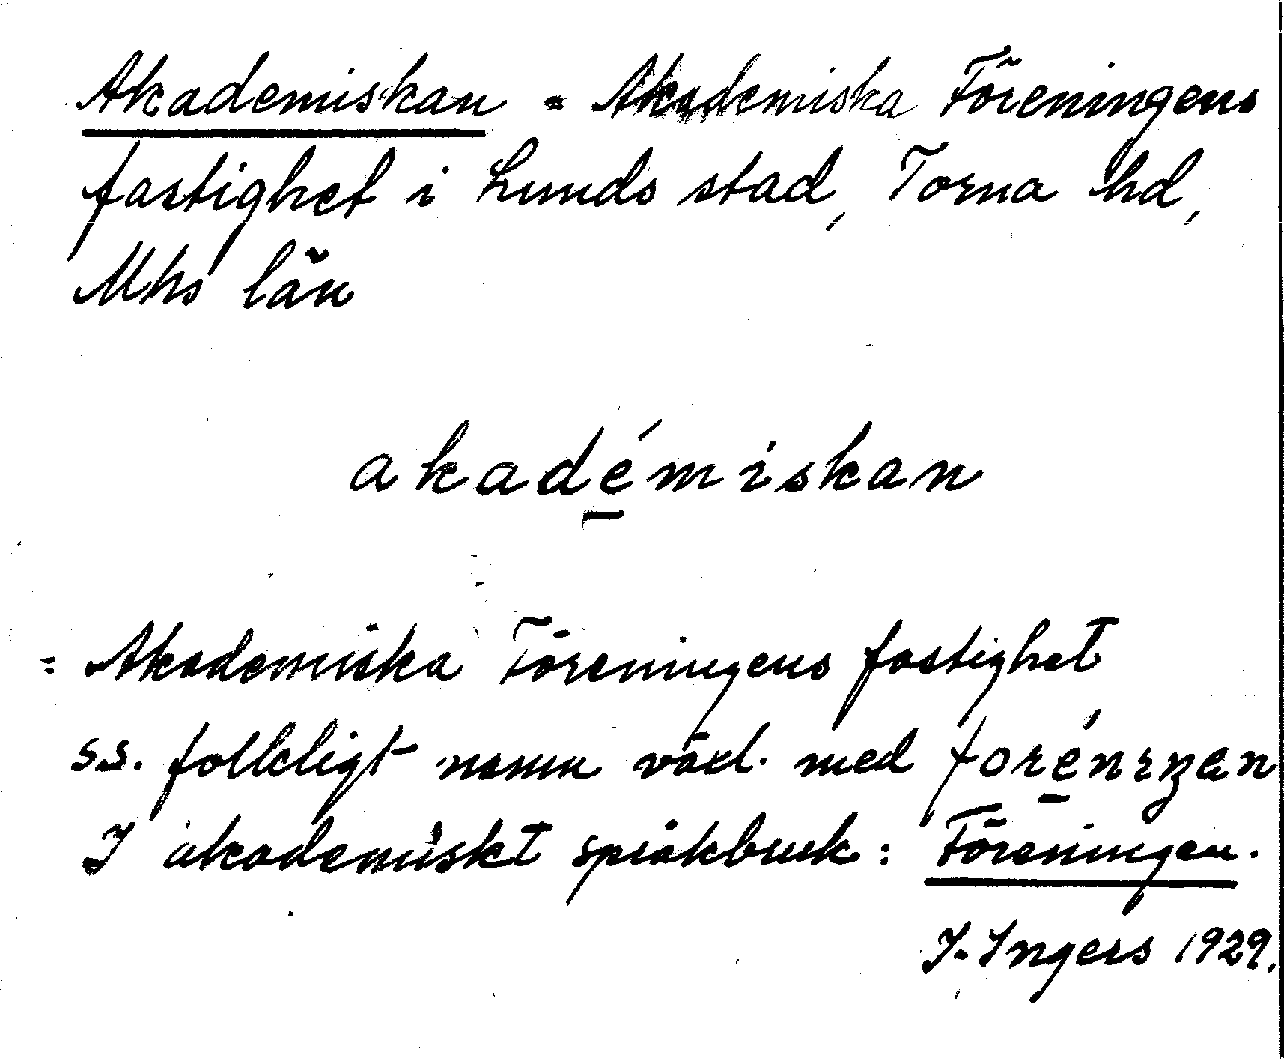 Akademiskan = Akademiska Föreningens
fastighet i Lunds stad, Torna hd,
Mhs län
akadé̱miskan
= Akademiska Föreningens fastighet
s.s. folkligt namn växl. med foré̱nıŋan
I akademiskt språkbruk: Föreningen.
I. Ingers 1929.